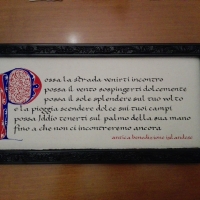 Possa la strada venirti incontro
possa il vento sospingerti dolcemente
possa il sole splendere sul tuo volto
e la pioggia scendere dolce sui tuoi campi
possa Iddio tenerti sul palmo della sua mano
fino a che non ci incontreremo ancora
antica benedizione irlandese